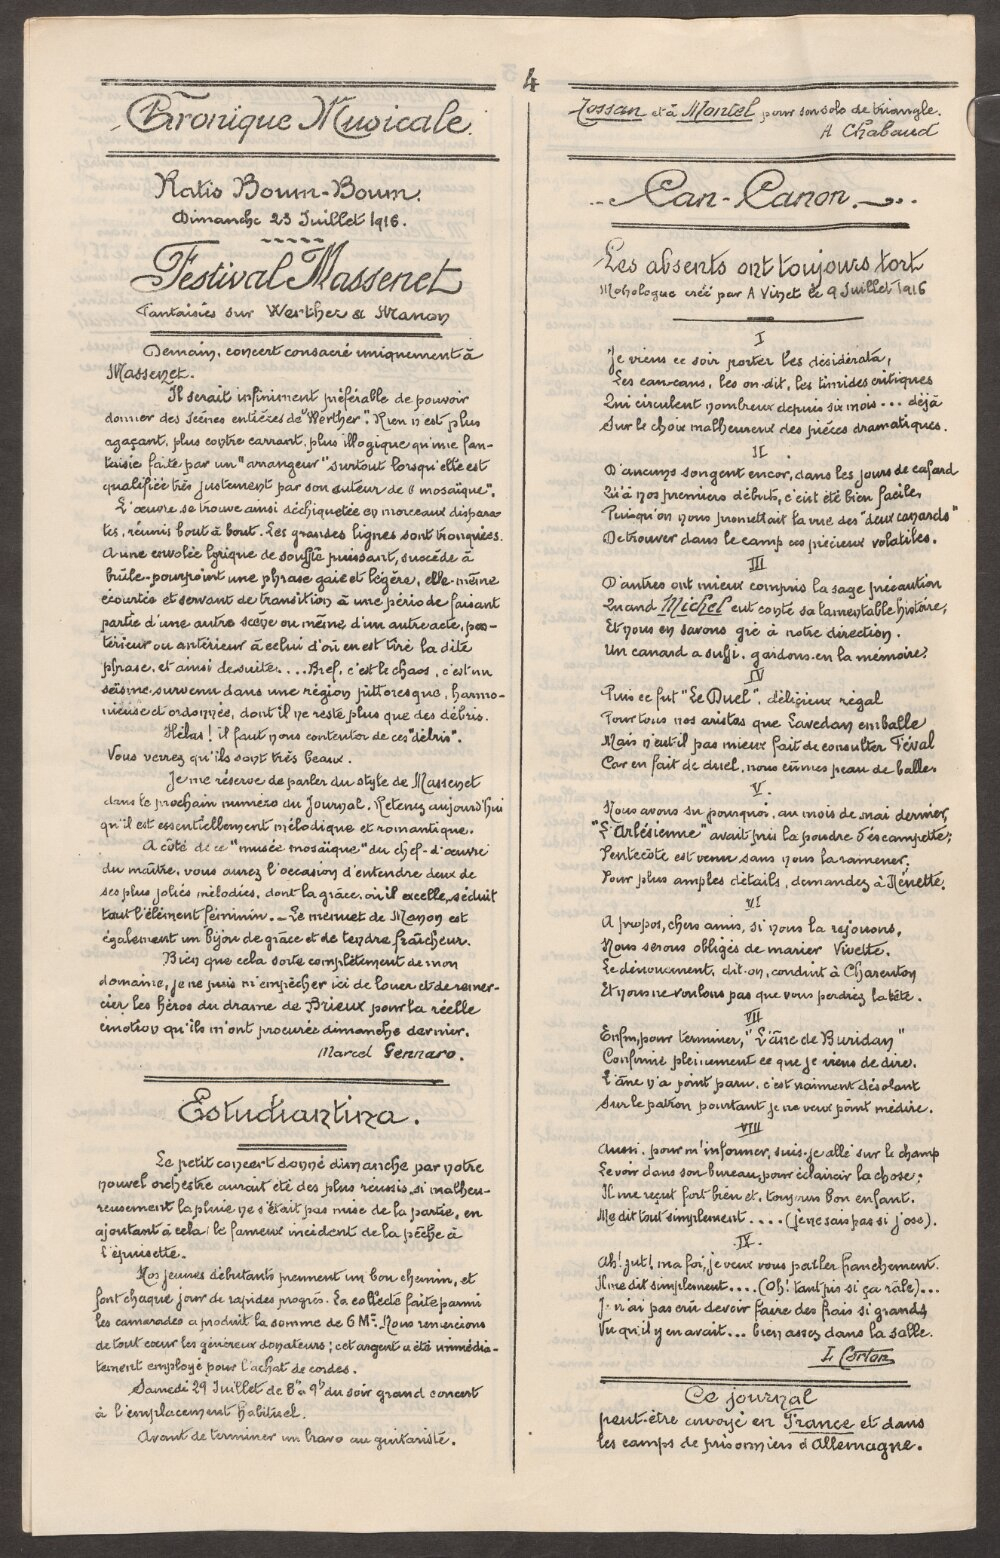 4
Chronique Musicale.
Ratis Boum-Boum.
Dimanche 23 Juillet 1916.
Festival Massenet
Fantaisies sur Werther & Manon
Demain, concert consacré uniquement à
Massenet.
Il serait infiniment préférable de pouvoir
donner des scènes entières de "Werther". Rien n'est plus
agaçant, plus contre carrant, plus illogique qu'une fan-
taisie faite par un "arrangeur" surtout lorsqu'elle est
qualifiée très justement par son auteur de "mosaïque".
L'œuvre se trouve ainsi déchiquetée en morceaux dispara-
tes, réunis bout à bout. Les grandes lignes sont tronquées.
A une envolée lyrique de souffle puissant, succède à
brûle-pourpoint une phrase gaie et légère, elle-même
écourtée et servant de transition à une période faisant
partie d'une autre scène ou même d'un autre acte, pos-
térieur ou antérieur à celui d'où en est tiré la dite
phrase, et ainsi de suite.... Bref, c'est le chaos, c'est un
séisme survenu dans une région pittoresque, harmo-
nieuse et ordonnée, dont il ne reste plus que des débris.
Hélas! il faut nous contenter de ces "débris".
Vous verrez qu'ils sont très beaux.
Je me réserve de parler du style de Massenet
dans le prochain numéro du Journal. Retenez aujourd'hui
qu'il est essentiellement mélodique et romantique.
A côté de ce "musée mosaïque" du chef-d'œuvre
du maître, vous aurez l'occasion d'entendre deux de
ses plus jolies mélodies, dont la grâce, où il excelle, séduit
tout l'élément féminin. _ Le menuet de Manon est
également un bijou de grâce et de tendre fraîcheur.
Bien que cela sorte complètement de mon
domaine, je ne puis m'empêcher ici de louer et de remer-
cier les héros du drame de Brieux pour la réelle
émotion qu'ils m'ont procurée dimanche dernier.
Marcel Gennaro.
Estudiantina.
Le petit concert donné dimanche par notre
nouvel orchestre aurait été des plus réussis, si malheu-
reusement la pluie ne s'était pas mise de la partie, en
ajoutant à cela le fameux incident de la pêche à
l'épuisette.
Nos jeunes débutants prennent un bon chemin, et
font chaque jour de rapides progrès. La collecte faite parmi
les camarades a produit la somme de 6 Mk. Nous remercions
de tout cœur les généreux donateurs; cet argent a été immédia-
tement employé pour l'achat de cordes.
Samedi 29 Juillet de 8h à 9h du soir grand concert
à l'emplacement habituel.
Avant de terminer un bravo au guitariste.
Jossan et à Montel pour son solo de triangle.
A Chabaud
Can-Canon.
Les absents ont toujours tort
Monologue créé par A Vinet le 9 Juillet 1916
I
Je viens ce soir porter les désidérata,
Les can-cans, les on-dit, les timides critiques
Qui circulent nombreux depuis six mois... déjà
Sur le choix malheureux des pièces dramatiques.
II
D'aucuns songent encor, dans les jours de cafard
Qu'à nos premiers débuts, c'eut été bien facile,
Puisqu'on nous promettait la vue des "deux canards"
De trouver dans le camp ces précieux volatiles.
III
D'autres ont mieux compris la sage précaution
Quand Michel eut conté sa lamentable histoire;
Et nous en savons gré à notre direction.
Un canard a suffi. gardons-en la mémoire!
IV
Puis ce fut "Le Duel", délicieux régal
Pour tous nos aristos que Lavedan emballe
Mais n'eut-il pas mieux fait de consulter Féval
Car en fait de duel, nous eûmes peau de balle.
V.
Nous avons su pourquoi, au mois de mai dernier,
"L'Arlésienne" avait pris la poudre d'escampette;
Pentecôte est venu sans nous la ramener;
Pour plus amples détails, demandez à Nénette.
VI
A propos, chers amis, si nous la rejouons,
Nous serons obligés de marier Vivette.
Le dénouement, dit-on, conduit à Charenton
Et nous ne voulons pas que vous perdiez la tête.
VII
Enfin, pour terminer, "L'âne de Buridan"
Confirme pleinement ce que je viens de dire.
L'âne n'a point paru, c'est vraiment désolant
Sur le patron pourtant je ne veux point médire.
VIII
Aussi, pour m'informer, suis-je allé sur le champ
Le voir dans son bureau, pour éclaircir la chose;
Il me reçut fort bien et, toujours bon enfant,
Me dit tout simplement .... (je ne sais pas si j'ose).
IX.
Ah! zut! ma foi, je veux vous parler franchement.
Il me dit simplement.... (Oh! tant pis si ça râle)...
Je n'ai pas crû devoir faire des frais si grands
Vu qu'il y en avait... bien assez dans la salle.
L Corton
Ce journal
peut-être envoyé en France et dans
les camps de prisonniers d'Allemagne.